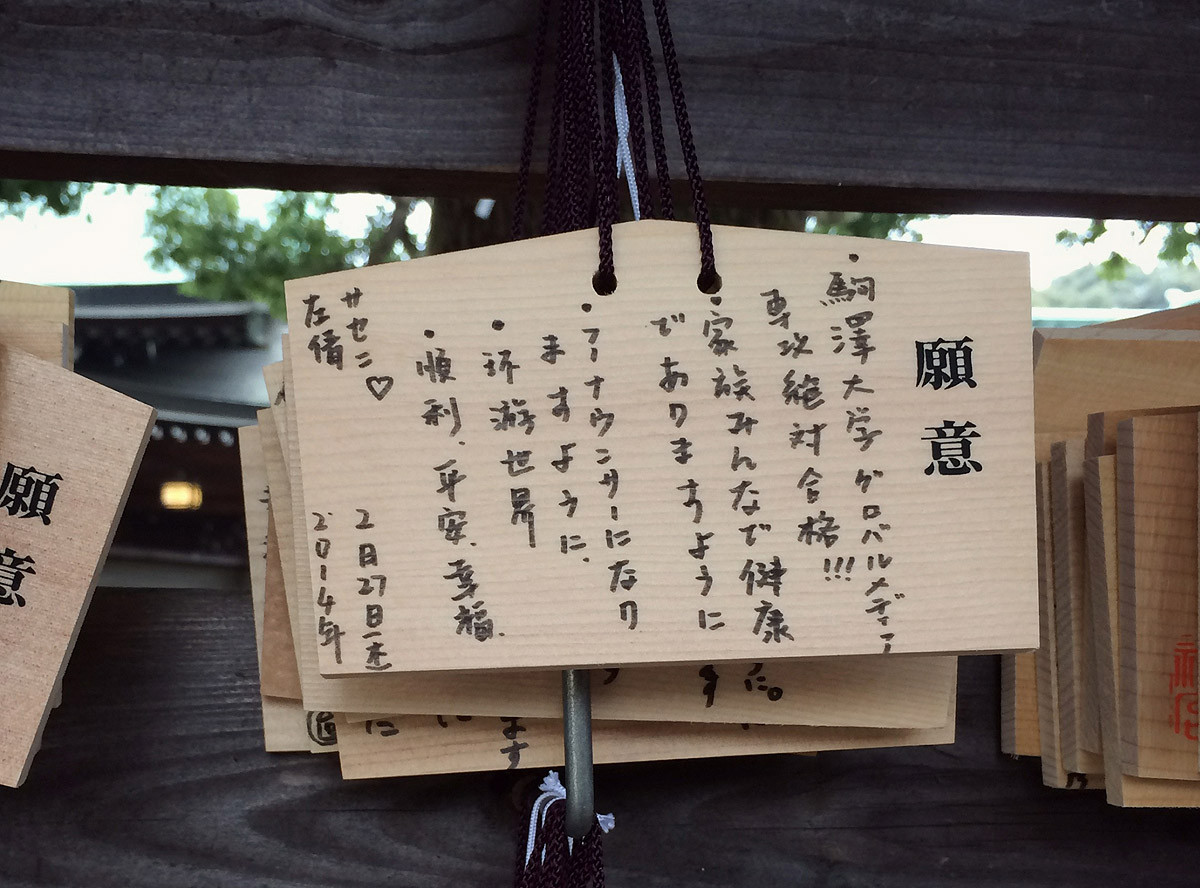 願意
・駒澤大学グロバルメディア
専攻絶対合格!!!
・家族みんなで健康
でありますように
・アーナウンサーになり
ますように、
・环游世界
・順利、平安、幸福、
サセニ♡
2月27日
左倩
2014年
願意
ます
に